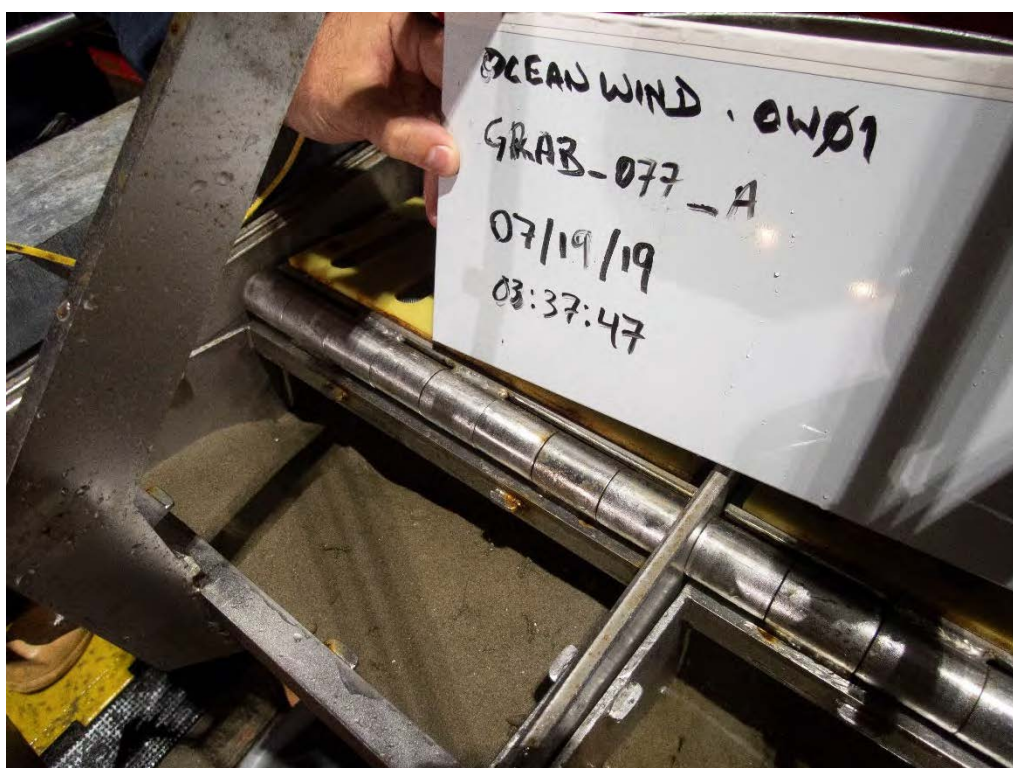 OCEAN WIND . OWØ1
GRAB_077_A
07/19/19
03:37:47